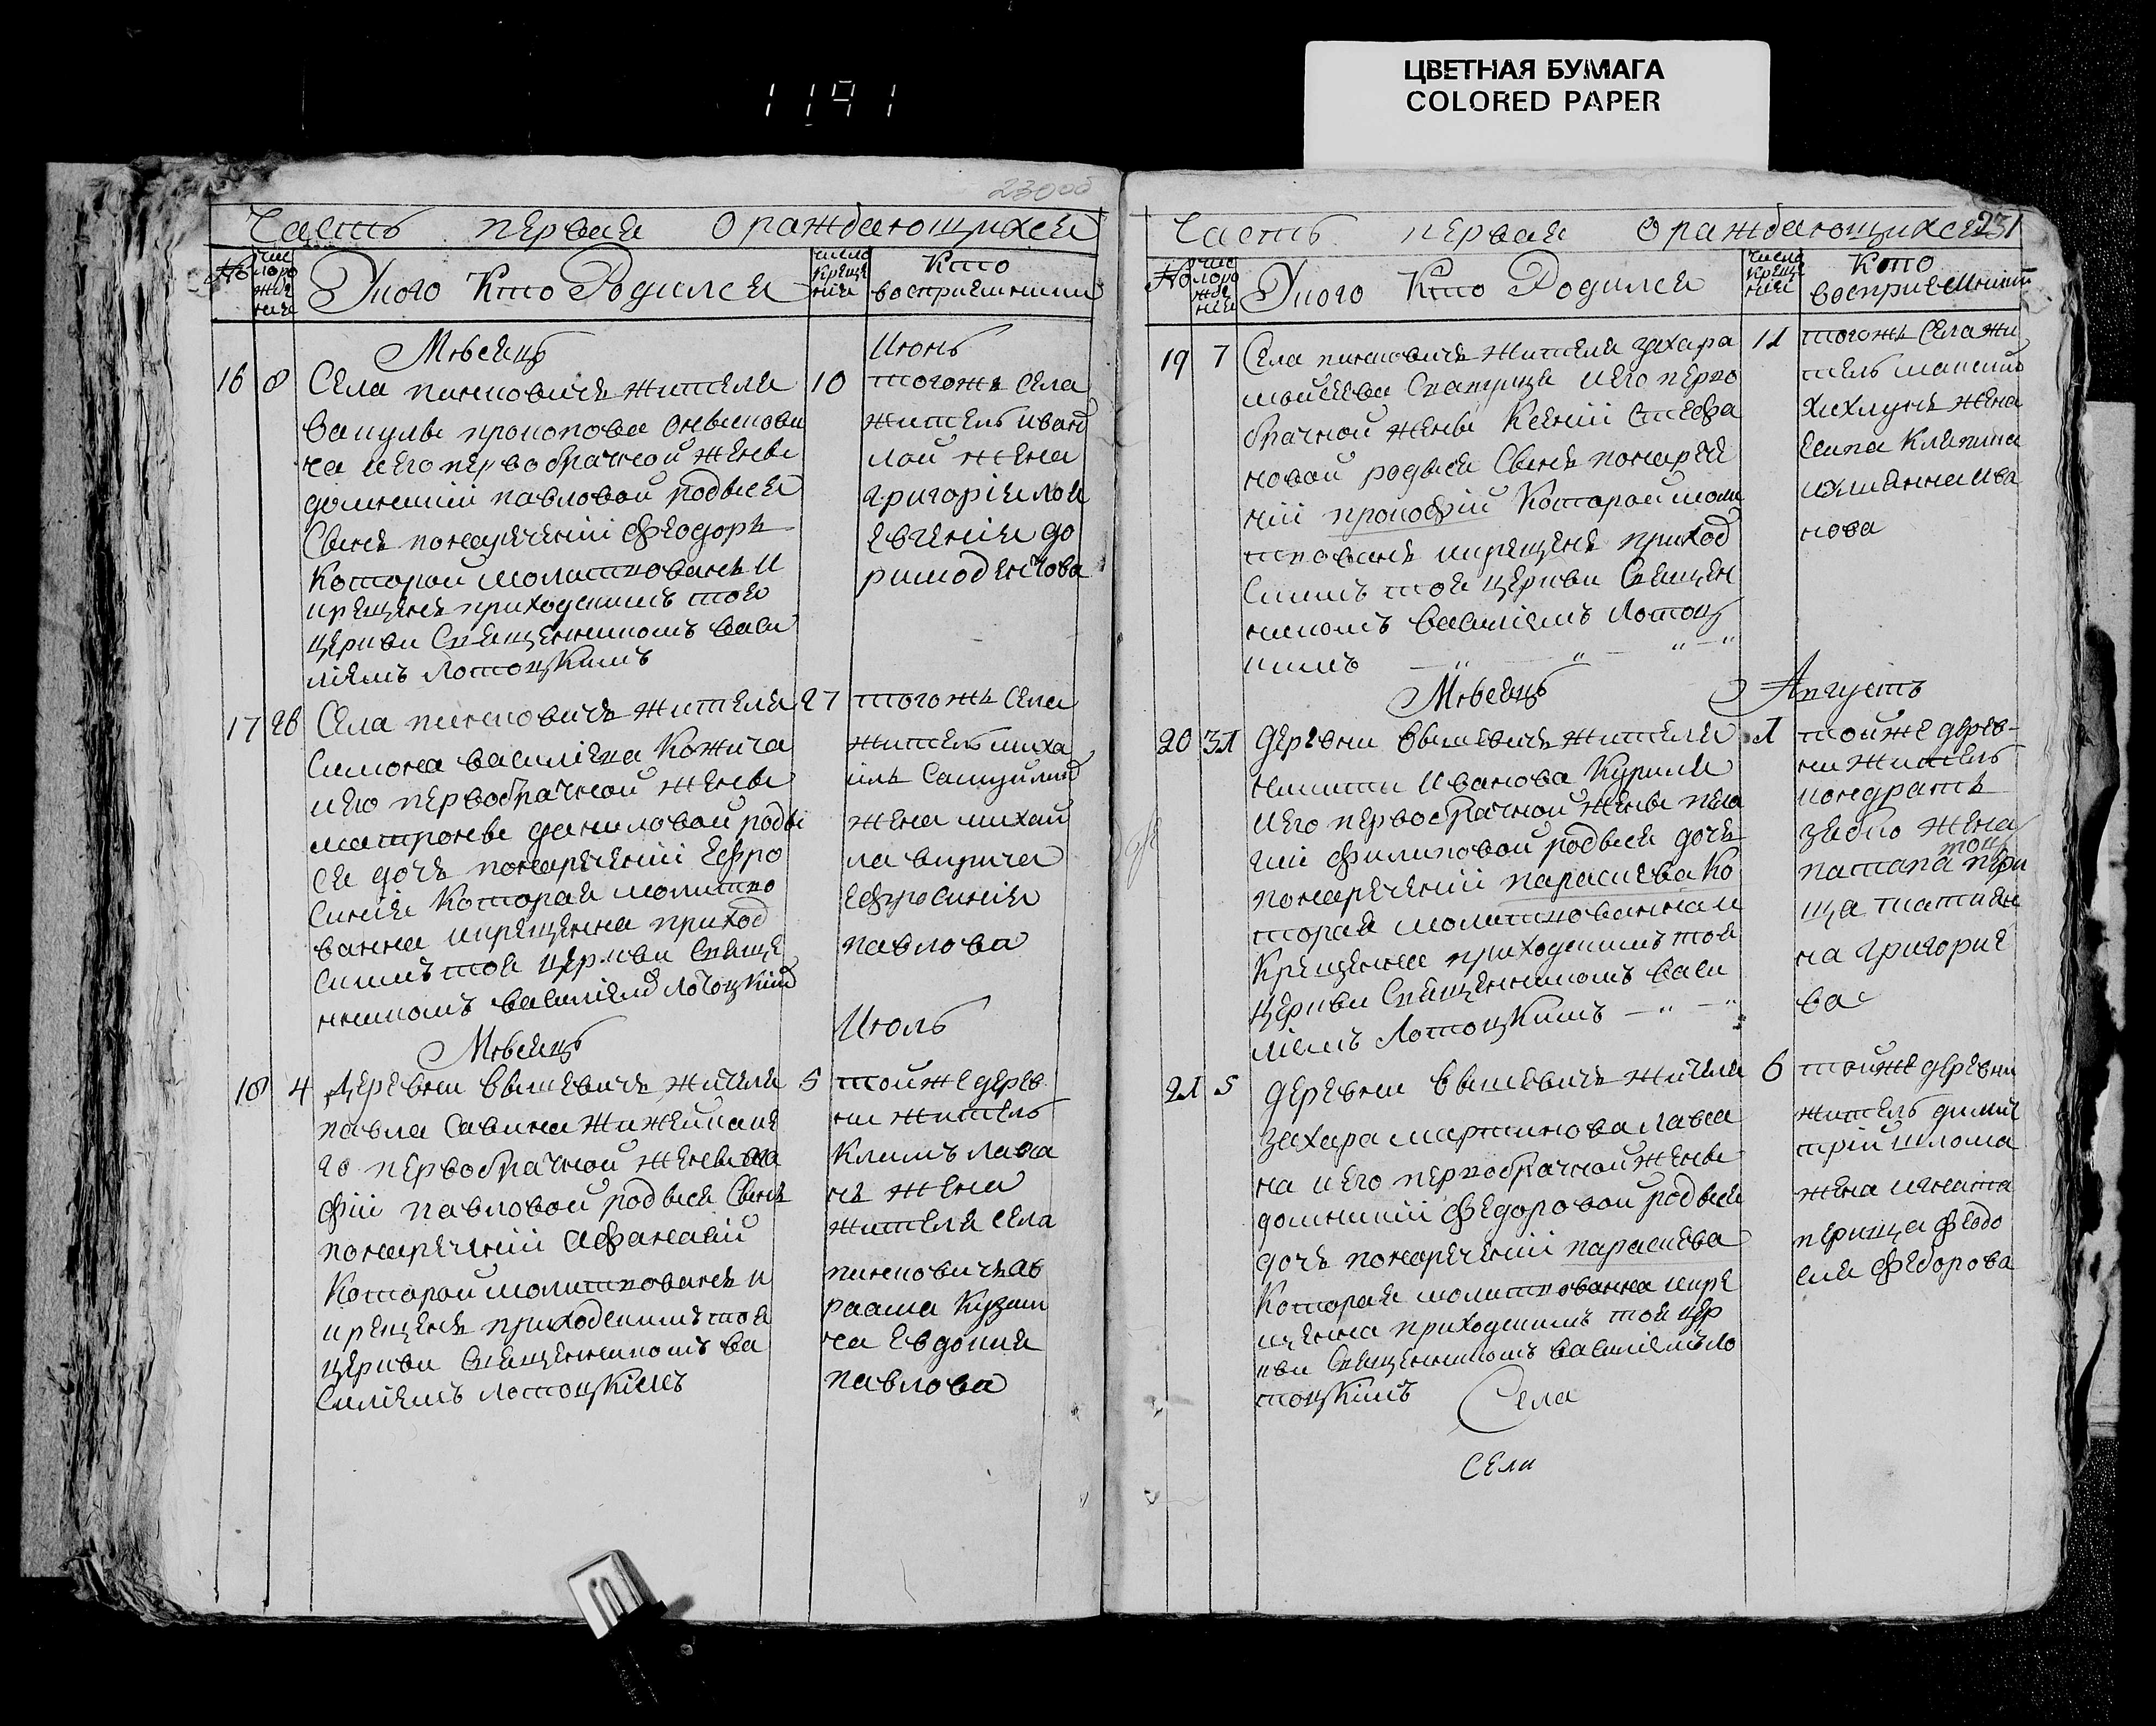 ЦВЕТНАЯ БУМАГА
COLORED PAPER
1191
230об
Часть первая о раждающихся
№
число рождения
У кого кто родился
число крещения
Кто восприемники
Мѣсяцъ Июнь
16 8
Села пинковичъ жителя
вакулы прокопова
ча иего первобрачной женѣ
домникіи павловой родился
Сынъ понаречении Феодоръ
которой молитвованъ и
крещенъ приходскимъ тоя
церкви Священникомъ васи
лиемъ Лотоцкимъ
10
тогожъ села
житель иванъ
лой жена
григория лоя
евгения до
17 26
Села пинковичъ жителя
Симона василиева Кожича
иего первобрачной женѣ
матронѣ даниловой роди
ся дочь понаречении Ефро
синия которая молитво
ванна икрещенна приход
скимъ тоя церкви Священ
нникомъ василиемъ Лотоцким
27
тогожъ села
житель миха
илъ
жена михай
ла
ефросиния
павлова
Мѣсяцъ Июль
18 4
Деревни вышевичъ жителя
павла Савина
го первобрачной женѣ ага
фіи павловой родился Сынъ
понаречении афанасий
которой молитвованъ и
крещенъ приходскимъ тоя
церкви Священникомъ ва
силиемъ лотоцкимъ
5
тойже дерев
ни житель
климъ лавса
нъ жена
жителя села
пинковичъ ав
раама кузми
ча евдокия
павлова
231
Часть первая о раждающихся
№
число рождения
У кого Кто Родился
число крещения
Кто восприемники
19 7
Села пинковичъ жителя захара
моисеева иего перво
брачной женѣ Ксении Стефа
новой родился Сынъ понарече
нии прокофий которой моли
твованъ икрещенъ приход
скимъ тоя церкви Священ
никомъ василиемъ Лотоц
кимъ
11
тогожъ села жи
тель максимъ
жена
анна ива
нова
Мѣсяцъ Августъ
20 31
Деревни вышевичъ жителя
никиты иванова Курила
иего первобрачной женѣ пела
гии филиповой родился дочь
понаречении параскева ко
торая молитвованна и
крещенна приходскимъ тоя
церкви Священникомъ васи
лиемъ Лотоцкимъ
1
тойже дерев-
ни житель
кондратъ
жена
татия
на григорие
ва
21 5
деревни вышевичъ жителя
захара мартинова лавса
на иего первобрачной женѣ
домникии федоровой родился
дочь понаречении параскева
которая молитвованна икре
щенна приходскимъ тоя цер
кви Священникомъ василиемъ ло
тоцкимъ
6
тойже деревни
житель дими
трий шлома
жена игната
перица феодо
сия федорова
Села
села